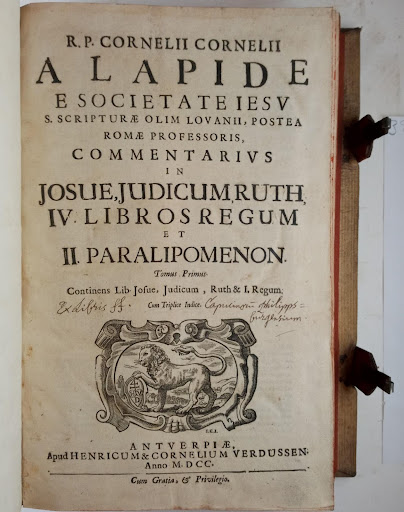 R. P. CORNELII CORNELII
A LAPIDE
E SOCIETATE IESV
S. SCRIPTURÆ OLIM LOVANII, POSTEA
ROMÆ PROFESSORIS,
COMMENTARIVS
IN
JOSUE, JUDICUM, RUTH,
IV. LIBROS REGUM
ET
II. PARALIPOMENON.
Tomus Primus.
Continens Lib. Josue, Judicum, Ruth & I. Regum;
Cum Triplice Indice.
Ex libris ff. Capucinorū Philipps=
burgensium.
ANTVERPIÆ,
Apud HENRICUM & CORNELIUM VERDUSSEN.
Anno M. DCC.
Cum Gratia, & Privilegio.